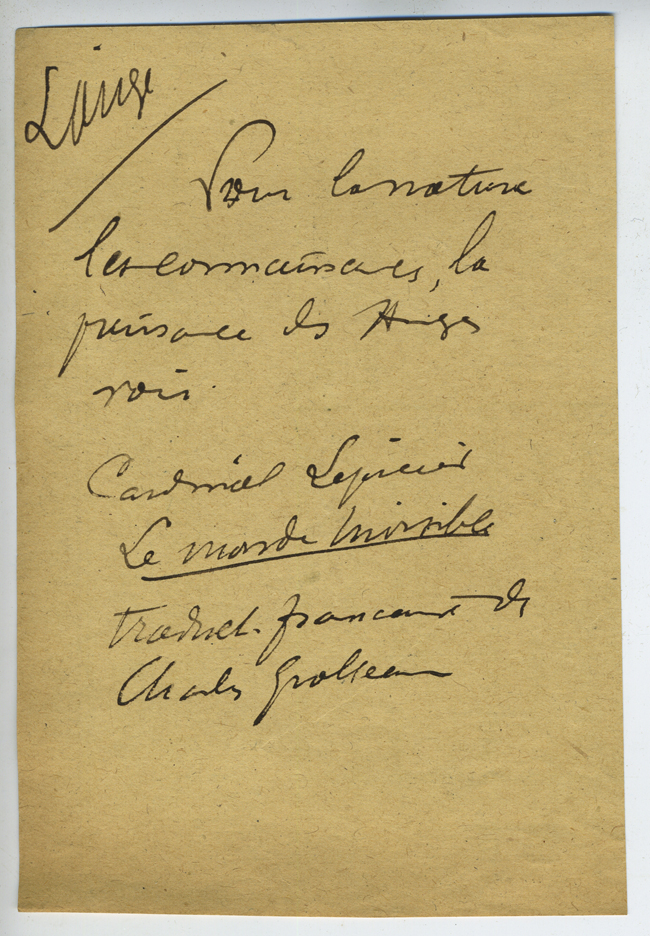 L'ange
Pour la nature
les connaissances, la
puissance des Anges
voir
Cardinal Lépicier
Le monde Invisible
traduct. francaise de
Charles Grolleau